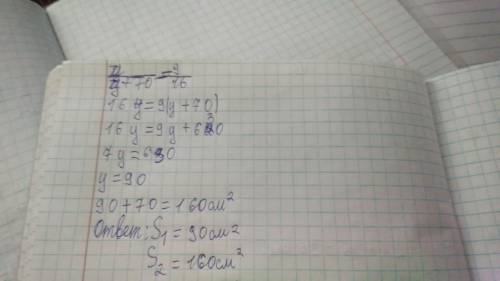 y/y+70=9/16
16y=9(y+70)
16y=9y+630
7y=630
y=90
90+70=160см²
Ответ: S₁=90см²
S₂=160см²